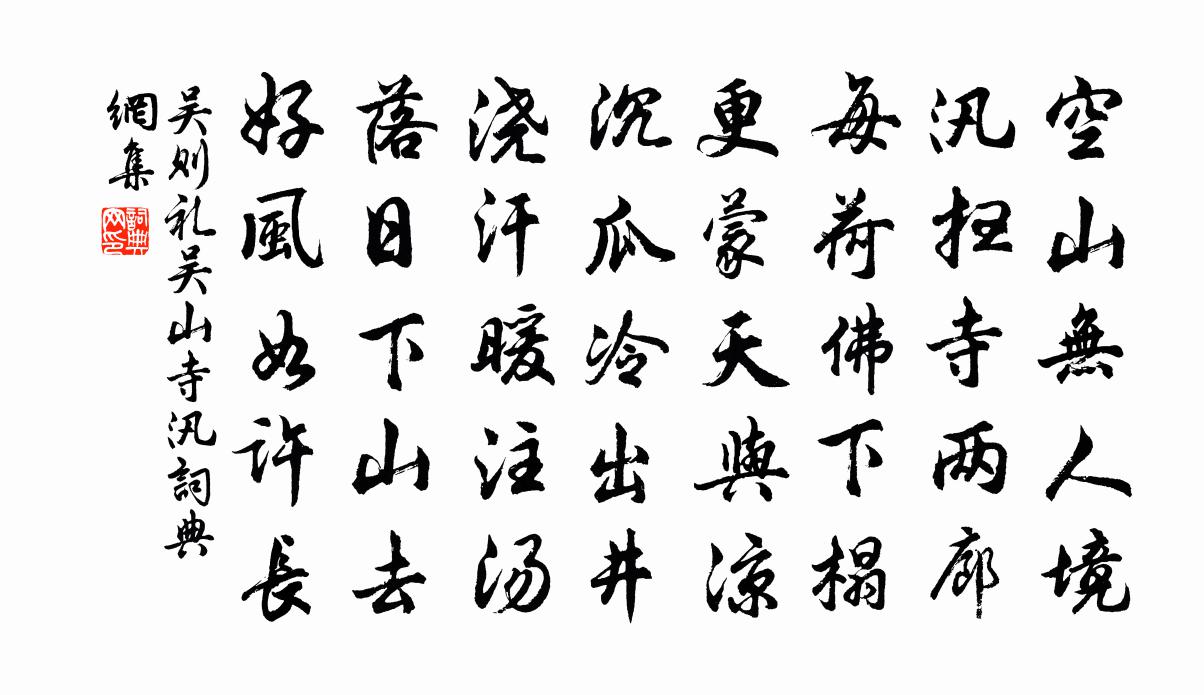 空山無人境
汎掃寺两廊
每荷佛下榻
更蒙天與凉
沉瓜冷出井
浇汗暖注汤
落日下山去
好風如许長
吴则礼吴山寺汎詞典
網集
詞典
网印